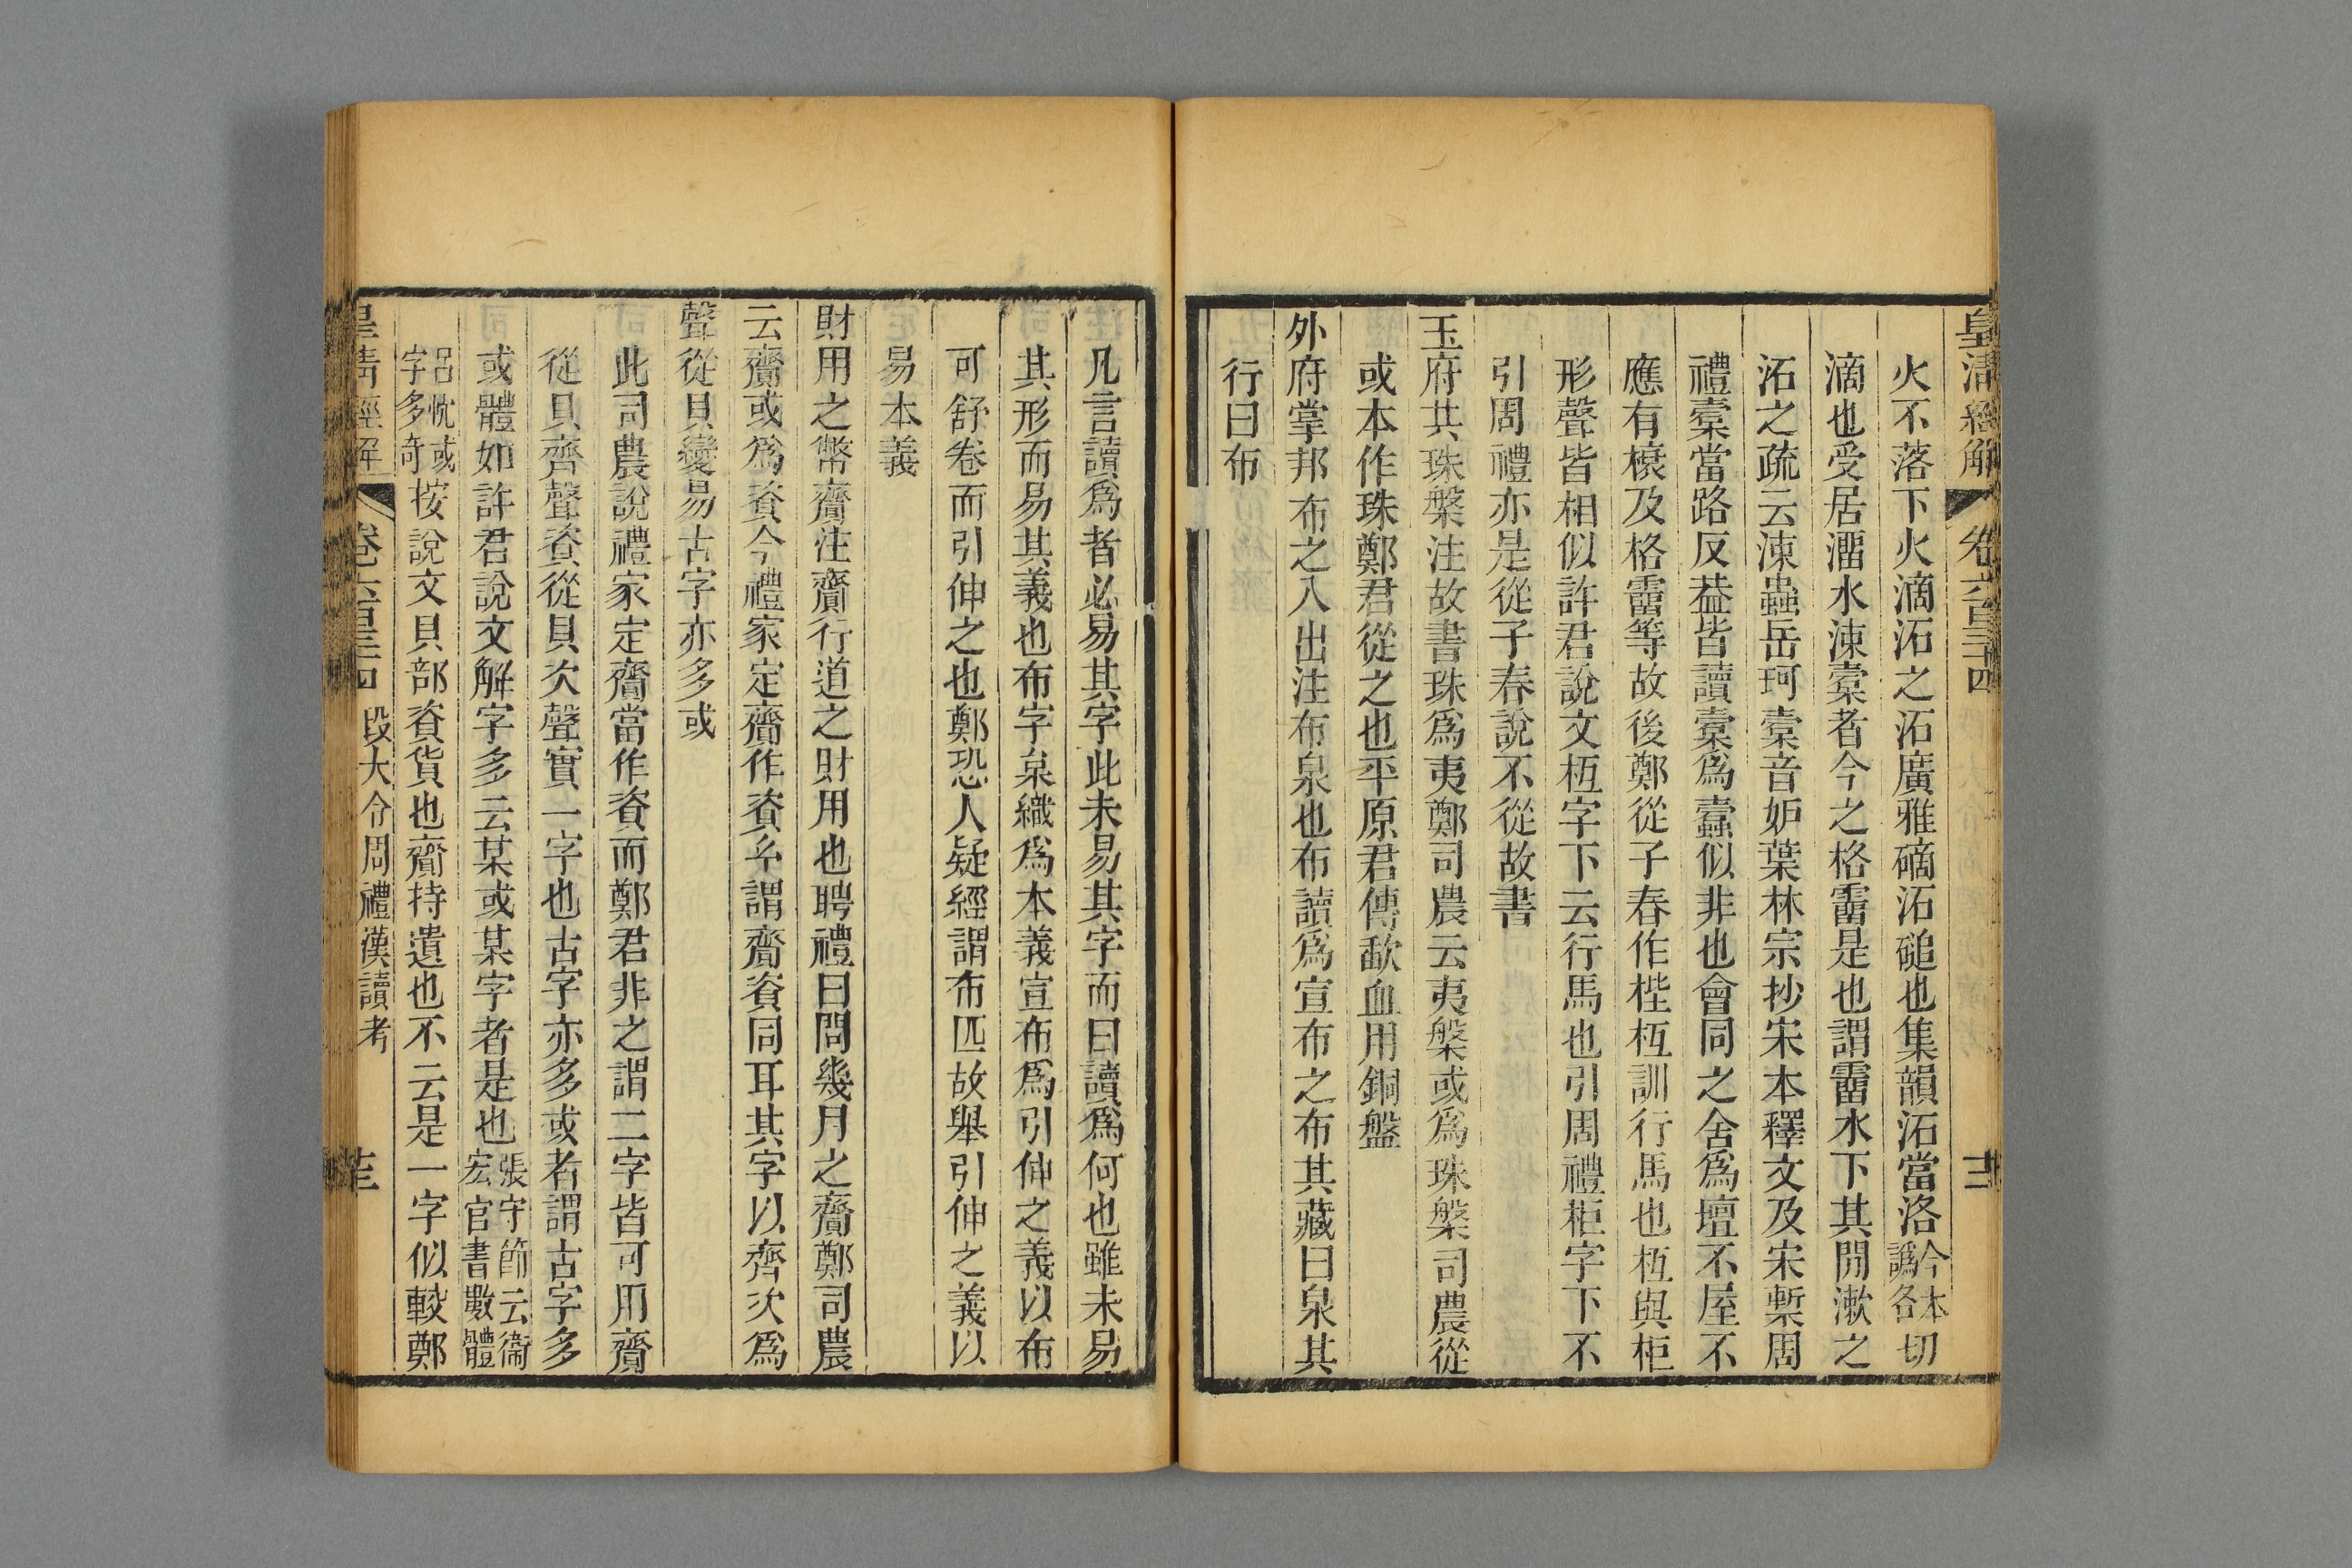 皇清經解 卷六百三十四
火不落下火滴沰之沰廣雅磆沰磓也集韻沰當洛今本譌各切
滴也受居溜水涑橐者今之格霤是也謂霤水下其開漱之
沰之疏云涑蟲岳珂橐音妒葉林宗抄宋本釋文及宋槧周
禮橐當路反葢皆讀橐爲蠹似非也會同之舍爲壇不屋不
應有榱及格霤等故後鄭從子春作梐枑訓行馬也枑與柜
形聲皆相似許君說文枑字下云行馬也引周禮柜字下不
引周禮亦是從子春說不從故書
玉府共珠槃注故書珠爲夷鄭司農云夷槃或爲珠槃司農從
或本作珠鄭君從之也平原君傳歃血用銅盤
外府掌邦布之入出注布泉也布讀爲宣布之布其藏曰泉其
行曰布
凡言讀爲者必易其字此未易其字而曰讀爲何也雖未易
其形而易其義也布字枲織爲本義宣布爲引伸之義以布
可舒卷而引伸之也鄭恐人疑經謂布匹故舉引伸之義以
易本義
財用之幣齎注齎行道之財用也聘禮曰問幾月之齎鄭司農
云齎或爲資今禮家定齎作資玄謂齎資同耳其字以齊次爲
聲從貝變易古字亦多或
此司農說禮家定齎當作資而鄭君非之謂二字皆可用齎
從貝齊聲資從貝次聲實一字也古字亦多或者謂古字多
或體如許君說文解字多云某或某字者是也張守節云衞宏官書數體
呂忱或字多奇按說文貝部資貨也齎持遺也不云是一字似較鄭
皇清經解 卷六百三十四 段大令周禮漢讀考